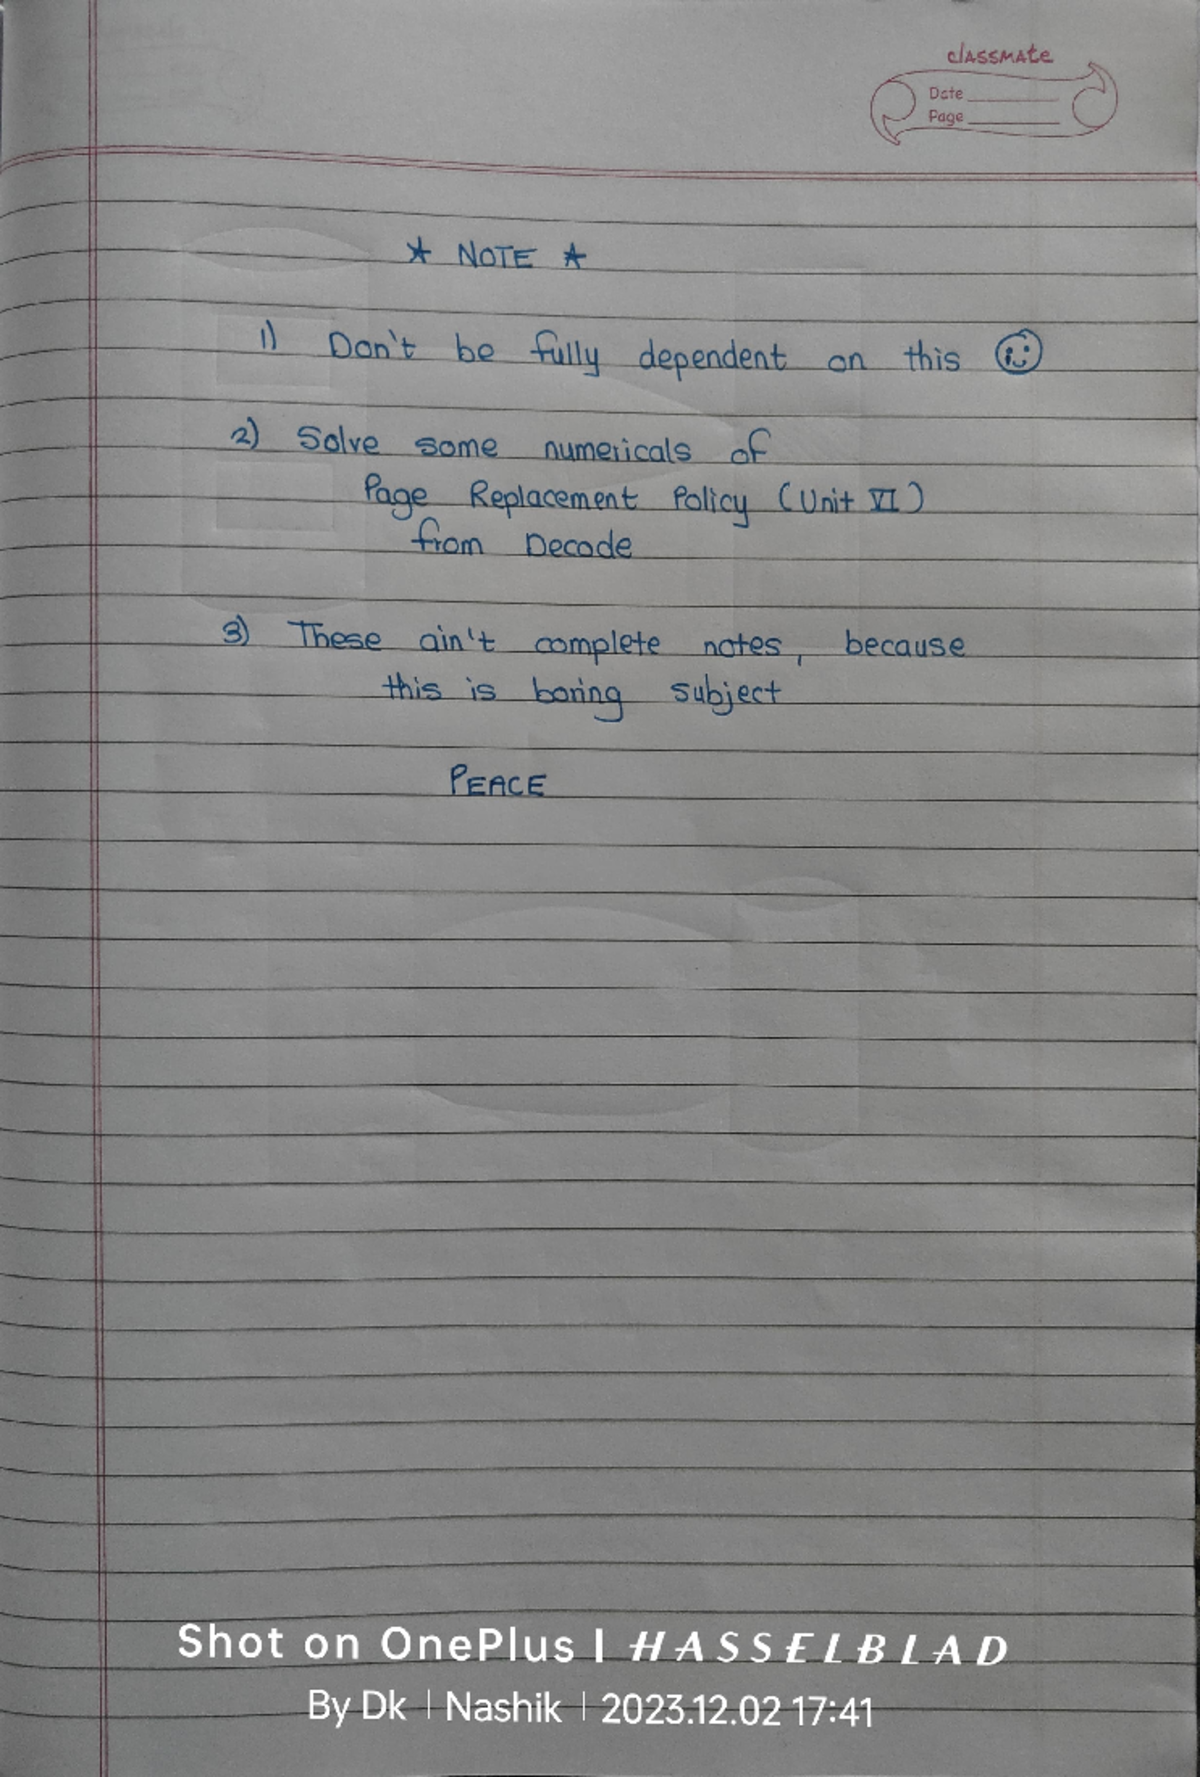 classmate
Date
Page
★ NOTE ★
1) Don't be fully dependent on this
2) Solve some numericals of
Page Replacement Policy (Unit VI)
from Decode
3) These ain't complete notes, because
this is boring subject
PEACE
Shot on OnePlus | HASSELBLAD
By Dk | Nashik | 2023.12.02 17:41